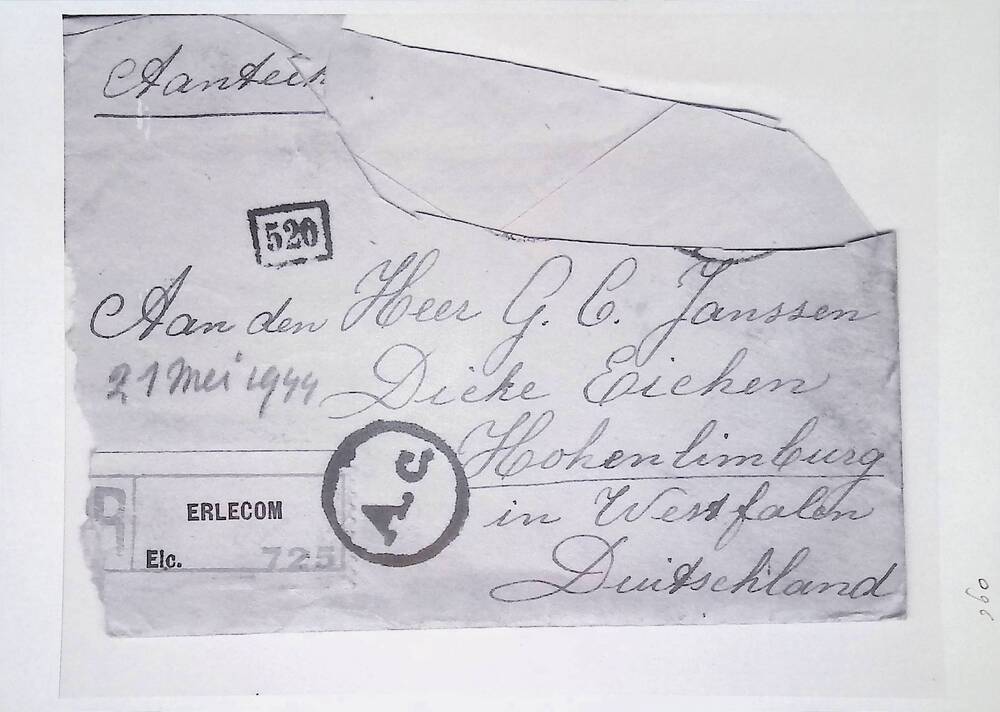 Aanteek
520
Aan den Heer G. C. Janssen
21 Mei 1944
Dicke Eichen
Hohenlimburg
in Westfalen
Duitschland
Ac
R
ERLECOM
Elc.
725
096